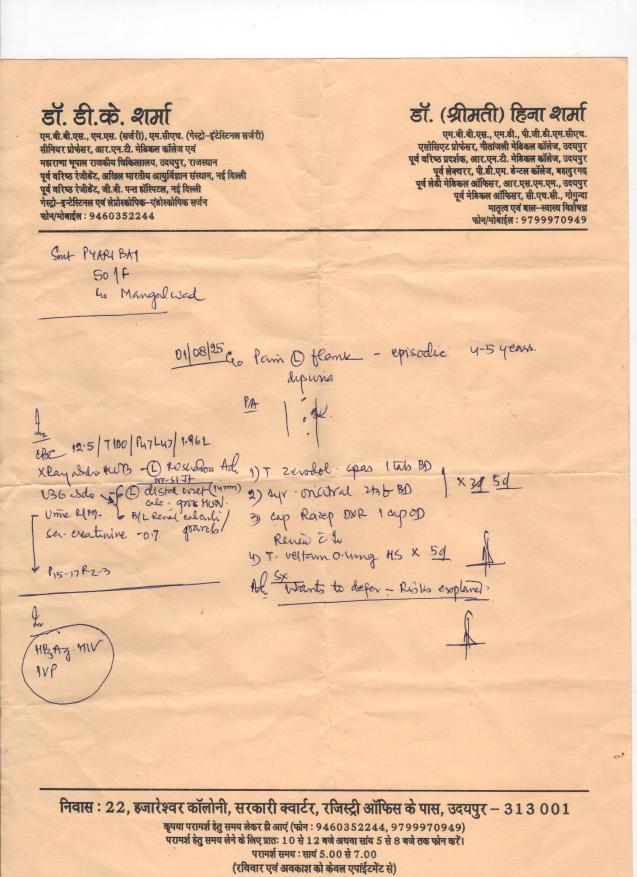 डॉ. डी.के. शर्मा
एम.बी.बी.एस., एम.एस. (सर्जरी), एम.सीएच. (गेस्ट्रो-इंटेस्टिनल सर्जरी)
सीनियर प्रोफेसर, आर.एन.टी. मेडिकल कॉलेज एवं
महाराणा भूपाल राजकीय चिकित्सालय, उदयपुर, राजस्थान
पूर्व वरिष्ठ रेजीडेंट, अखिल भारतीय आयुर्विज्ञान संस्थान, नई दिल्ली
पूर्व वरिष्ठ रेजीडेंट, जी.बी. पन्त हॉस्पिटल, नई दिल्ली
गेस्ट्रो-इन्टेस्टिनल एवं लेप्रोस्कोपिक-एंडोस्कोपिक सर्जन
फोन/मोबाईल : 9460352244
डॉ. (श्रीमती) हिना शर्मा
एम.बी.बी.एस., एम.डी., पी.जी.डी.एम.सीएच.
एसोसिएट प्रोफेसर, गीतांजली मेडिकल कॉलेज, उदयपुर
पूर्व वरिष्ठ प्रदर्शक, आर.एन.टी. मेडिकल कॉलेज, उदयपुर
पूर्व लेक्चरर, पी.डी.एम. डेन्टल कॉलेज, बहादुरगढ़
पूर्व लेडी मेडिकल ऑफिसर, आर.एस.एम.एम., उदयपुर
पूर्व मेडिकल ऑफिसर, सी.एच.सी., गोगुन्दा
मातृत्व एवं बाल-स्वास्थ्य विशेषज्ञ
फोन/मोबाईल : 9799970949
Smt PYARI BAI
50/F
Mangalwad
01/08/25 C/o Pain (L) flank - episodic 4-5 years.
dysuria
P/A
CBC 12.5/7100/P47L47/1.96L
Xray abdo KUB - (L)
USG abdo (L) distal ureter (14mm)
calc. gross HUN
Urine R/M B/L Renal calculi
Ser. creatinine - 0.7
P15-17 R-2-3
1) T. zerodol 1 tab BD
2) syr. 2tsf BD
x 5d
3) cap Razep DXR 1 cap OD
Review
4) T. 0.4mg HS x 5d
Ad Sx Wants to defer - Risks explained.
HBsAg. HIV
IVP
निवास : 22, हजारेश्वर कॉलोनी, सरकारी क्वार्टर, रजिस्ट्री ऑफिस के पास, उदयपुर - 313 001
कृपया परामर्श हेतु समय लेकर ही आएं (फोन : 9460352244, 9799970949)
परामर्श हेतु समय लेने के लिए प्रातः 10 से 12 बजे अथवा सांय 5 से 8 बजे तक फोन करें।
परामर्श समय : सायं 5.00 से 7.00
(रविवार एवं अवकाश को केवल एपाईंटमेंट से)